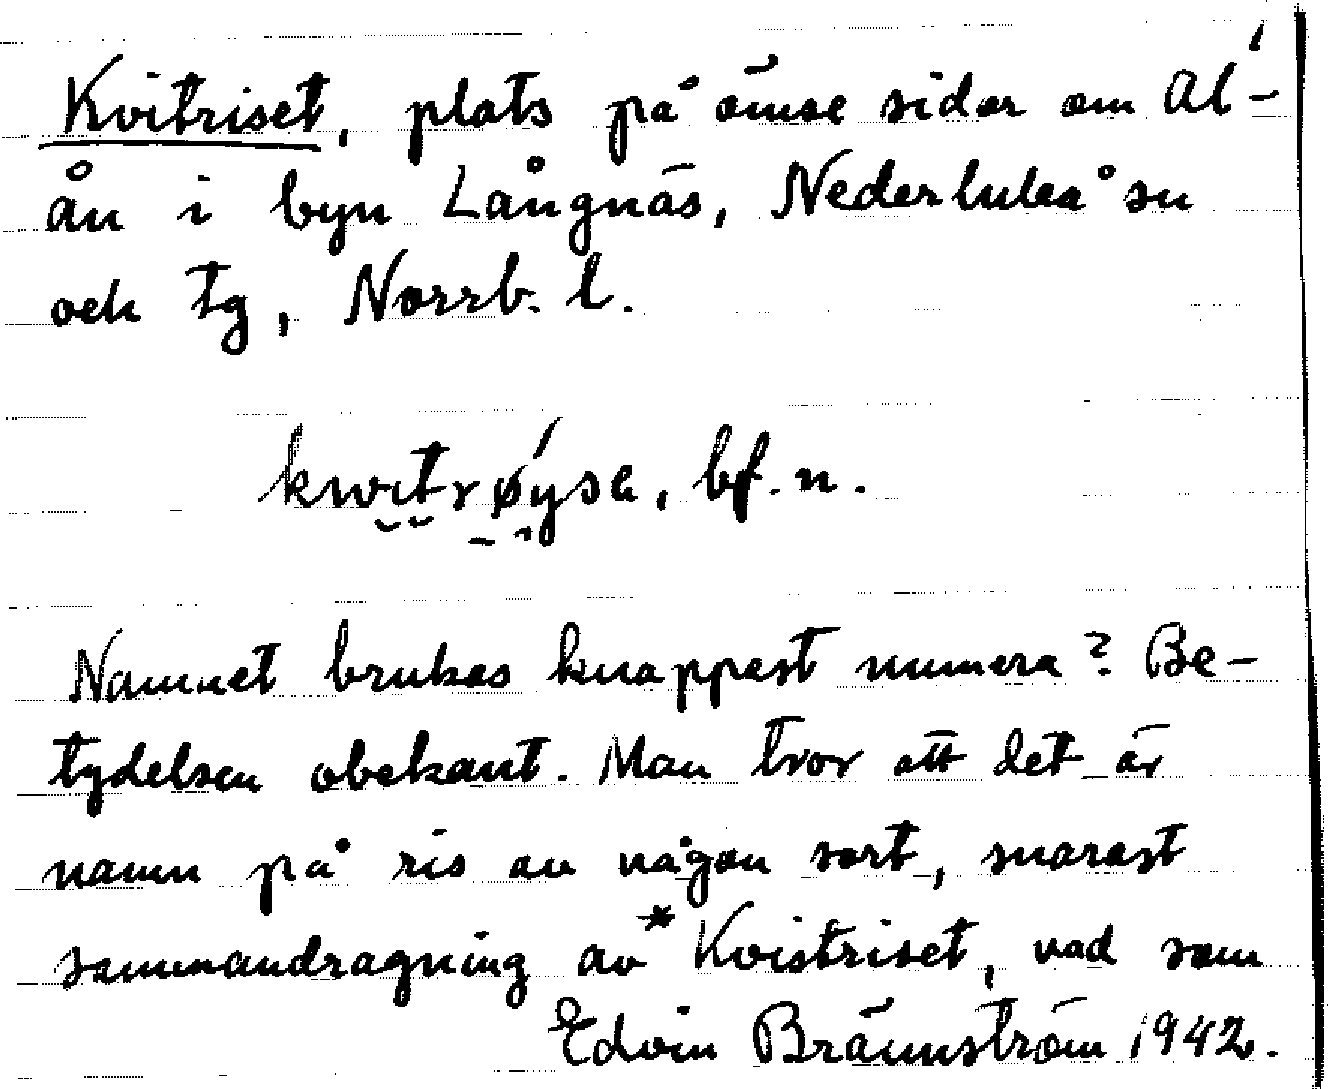 Kvitriset, plats på ömse sidor om Al-
ån i byn Långnäs, Nederluleå sn
och tg, Norrb. l.
kwitrøysa, bf. n.
Namnet brukas knappast numera? Be-
tydelsen obekant. Man tror att det är
namn på ris av någon sort, snarast
sammandragning av *Kvistriset, vad som
Edvin Brännström 1942.